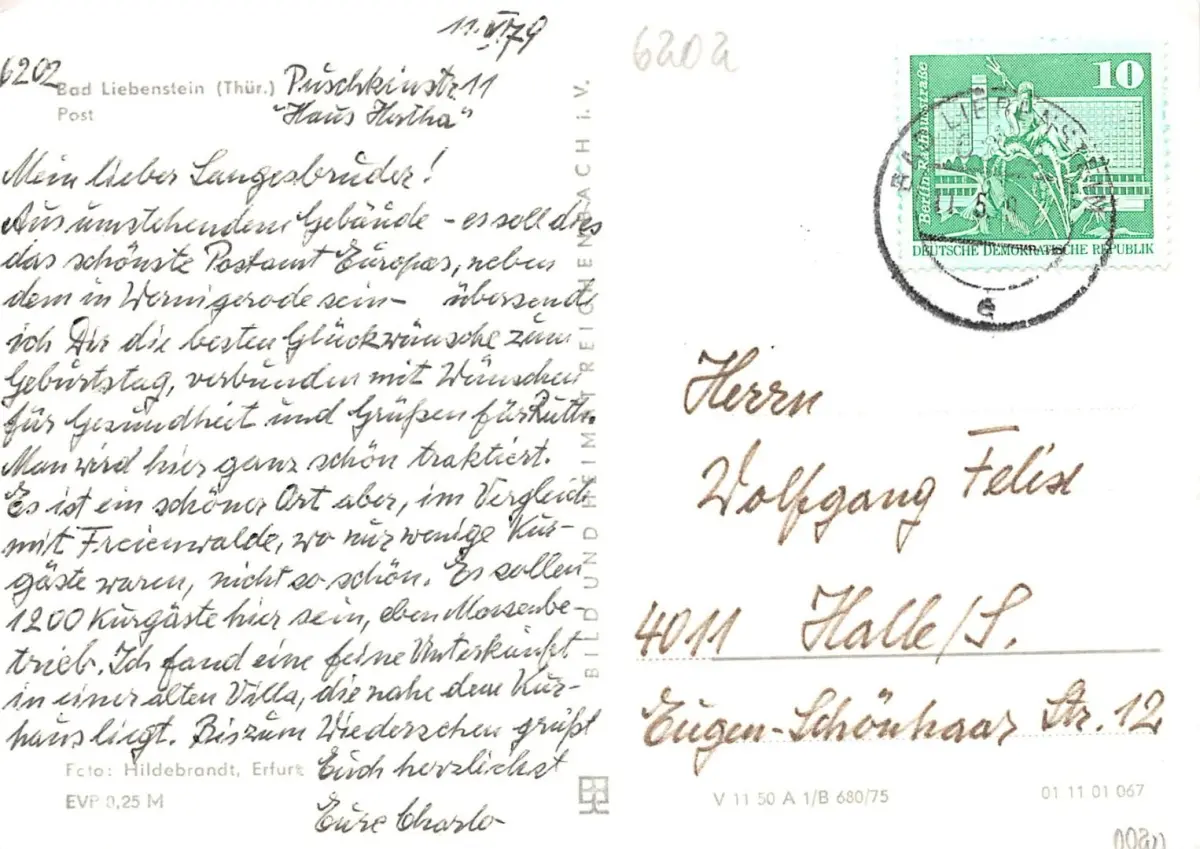 11.VI.79
6202
Bad Liebenstein (Thür.)
Post
Puschkinstr. 11
"Haus Hertha"
Mein lieber Sangesbruder!
Aus umstehendem Gebäude - es soll dies
das schönste Postamt Europas, neben
dem in Wernigerode sein - übersende
ich Dir die besten Glückwünsche zum
Geburtstag, verbunden mit Wünschen
für Gesundheit und Grüßen für Ruth.
Man wird hier ganz schön traktiert.
Es ist ein schöner Ort aber, im Vergleich
mit Freienwalde, wo nur wenige Kur-
gäste waren, nicht so schön. Es sollen
1200 Kurgäste hier sein, eben Massenbe-
trieb. Ich fand eine feine Unterkunft
in einer alten Villa, die nahe dem Kur-
haus liegt. Bis zum Wiedersehen grüßt
Euch herzlichst
Eure Charlo-
Foto: Hildebrandt, Erfurt
EVP 0,25 M
BILD UND HEIMAT REICHENBACH i. V.
6202
10
Berlin-Rathausstraße
DEUTSCHE DEMOKRATISCHE REPUBLIK
BAD LIEBENSTEIN
e
Herrn
Wolfgang Felix
4011 Halle/S.
Eugen-Schönhaar Str. 12
V 11 50 A 1/B 680/75
01 11 01 067